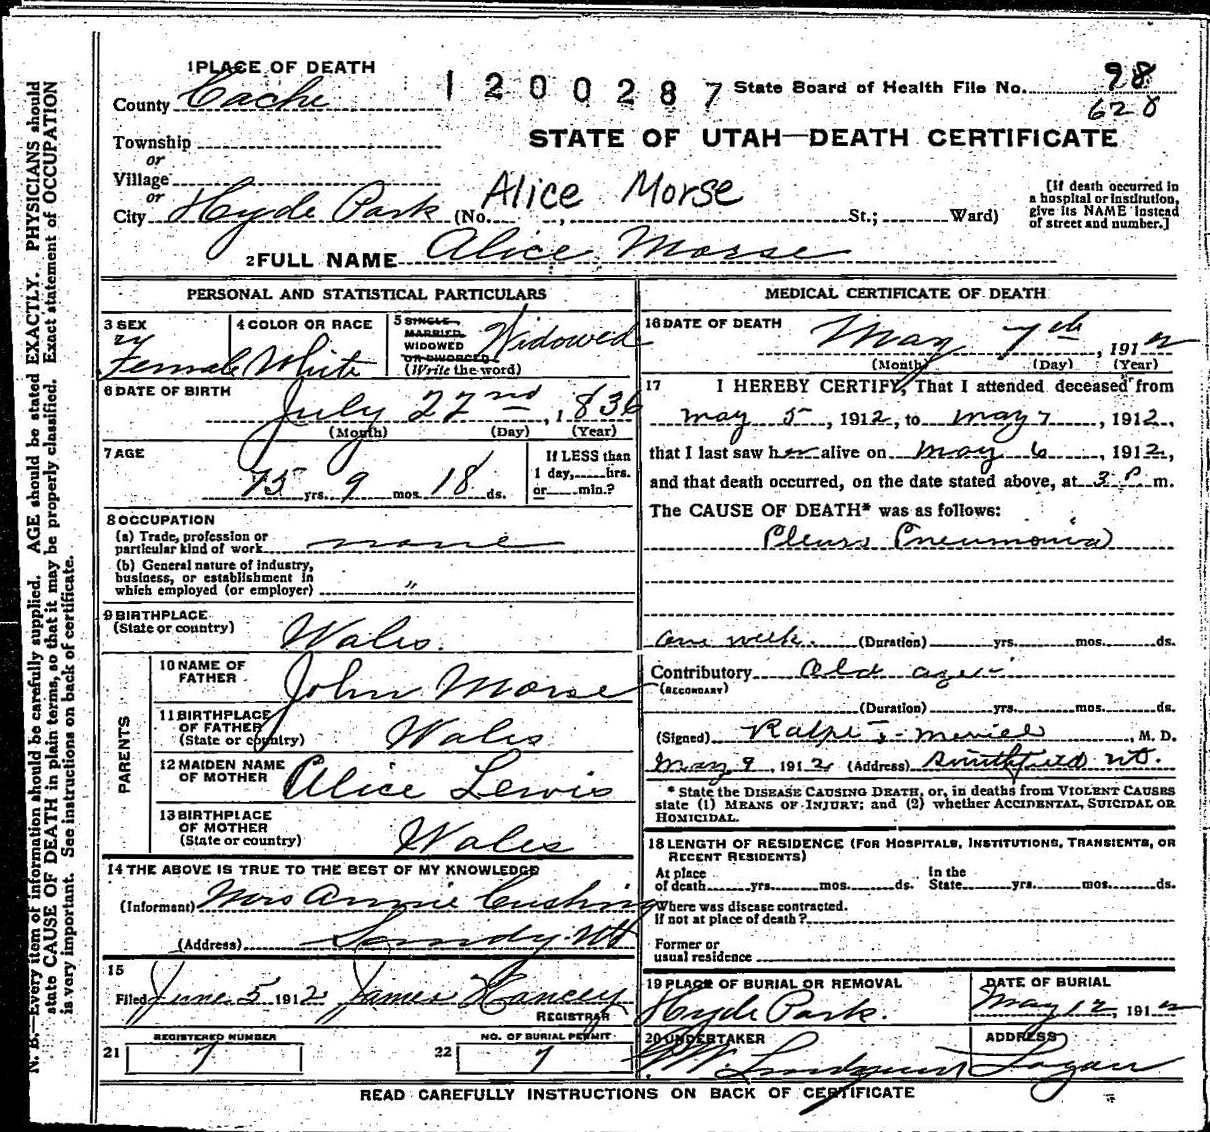 1 PLACE OF DEATH
County Cache
1200287
State Board of Health File No. 98
628
STATE OF UTAH—DEATH CERTIFICATE
Township
or
Village
or
City Hyde Park (No. , St.; Ward)
Alice Morse
[If death occurred in
a hospital or institution,
give its NAME instead
of street and number.]
2 FULL NAME Alice Morse
PERSONAL AND STATISTICAL PARTICULARS
3 SEX
Female
4 COLOR OR RACE
White
5 SINGLE,
MARRIED,
WIDOWED
OR DIVORCED
(Write the word)
Widowed
6 DATE OF BIRTH
July 22nd, 1836
(Month) (Day) (Year)
7 AGE
75 yrs. 9 mos. 18 ds.
If LESS than
1 day, hrs.
or min.?
8 OCCUPATION
(a) Trade, profession or
particular kind of work none
(b) General nature of industry,
business, or establishment in
which employed (or employer) "
9 BIRTHPLACE
(State or country)
Wales.
PARENTS
10 NAME OF
FATHER
John Morse
11 BIRTHPLACE
OF FATHER
(State or country)
Wales
12 MAIDEN NAME
OF MOTHER
Alice Lewis
13 BIRTHPLACE
OF MOTHER
(State or country)
Wales
14 THE ABOVE IS TRUE TO THE BEST OF MY KNOWLEDGE
(Informant) Mrs Annie Cushing
(Address) Sandy Ut
15
Filed June 5 1912 James Hancey
REGISTRAR
REGISTERED NUMBER
21 7
NO. OF BURIAL PERMIT
22 7
MEDICAL CERTIFICATE OF DEATH
16 DATE OF DEATH
May 7th, 1912
(Month) (Day) (Year)
17 I HEREBY CERTIFY, That I attended deceased from
May 5, 1912, to May 7, 1912,
that I last saw her alive on May 6, 1912,
and that death occurred, on the date stated above, at 3 P. m.
The CAUSE OF DEATH* was as follows:
Pleuro Pneumonia
one week. (Duration) yrs. mos. ds.
Contributory Old age
(SECONDARY)
(Duration) yrs. mos. ds.
(Signed) , M. D.
May 9, 1912 (Address) Smithfield Ut.
* State the DISEASE CAUSING DEATH, or, in deaths from VIOLENT CAUSES
state (1) MEANS OF INJURY; and (2) whether ACCIDENTAL, SUICIDAL OR
HOMICIDAL.
18 LENGTH OF RESIDENCE (FOR HOSPITALS, INSTITUTIONS, TRANSIENTS, OR
RECENT RESIDENTS)
At place
of death yrs. mos. ds.
In the
State yrs. mos. ds.
Where was disease contracted.
If not at place of death?
Former or
usual residence
19 PLACE OF BURIAL OR REMOVAL
Hyde Park.
DATE OF BURIAL
May 12, 1912
20 UNDERTAKER
Lindquist
ADDRESS
Logan
READ CAREFULLY INSTRUCTIONS ON BACK OF CERTIFICATE
N. B.—Every item of information should be carefully supplied. AGE should be stated EXACTLY. PHYSICIANS should
state CAUSE OF DEATH in plain terms, so that it may be properly classified. Exact statement of OCCUPATION
is very important. See instructions on back of certificate.